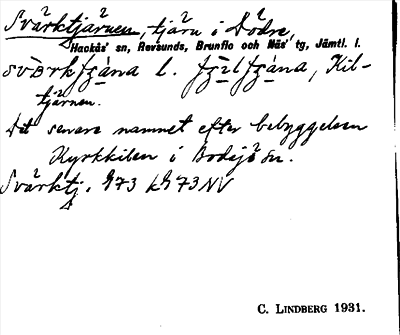 Svärktjärnen, tjärn i Dödre,
Hackås' sn, Revsunds, Brunflo och Näs' tg, Jämtl. l.
l. Kil-
tjärnen.
Det senare namnet efter bebyggelsen
Kyrkkilen i Bodsjö sn.
Svärktj. 973 k973NV
C. LINDBERG 1931.